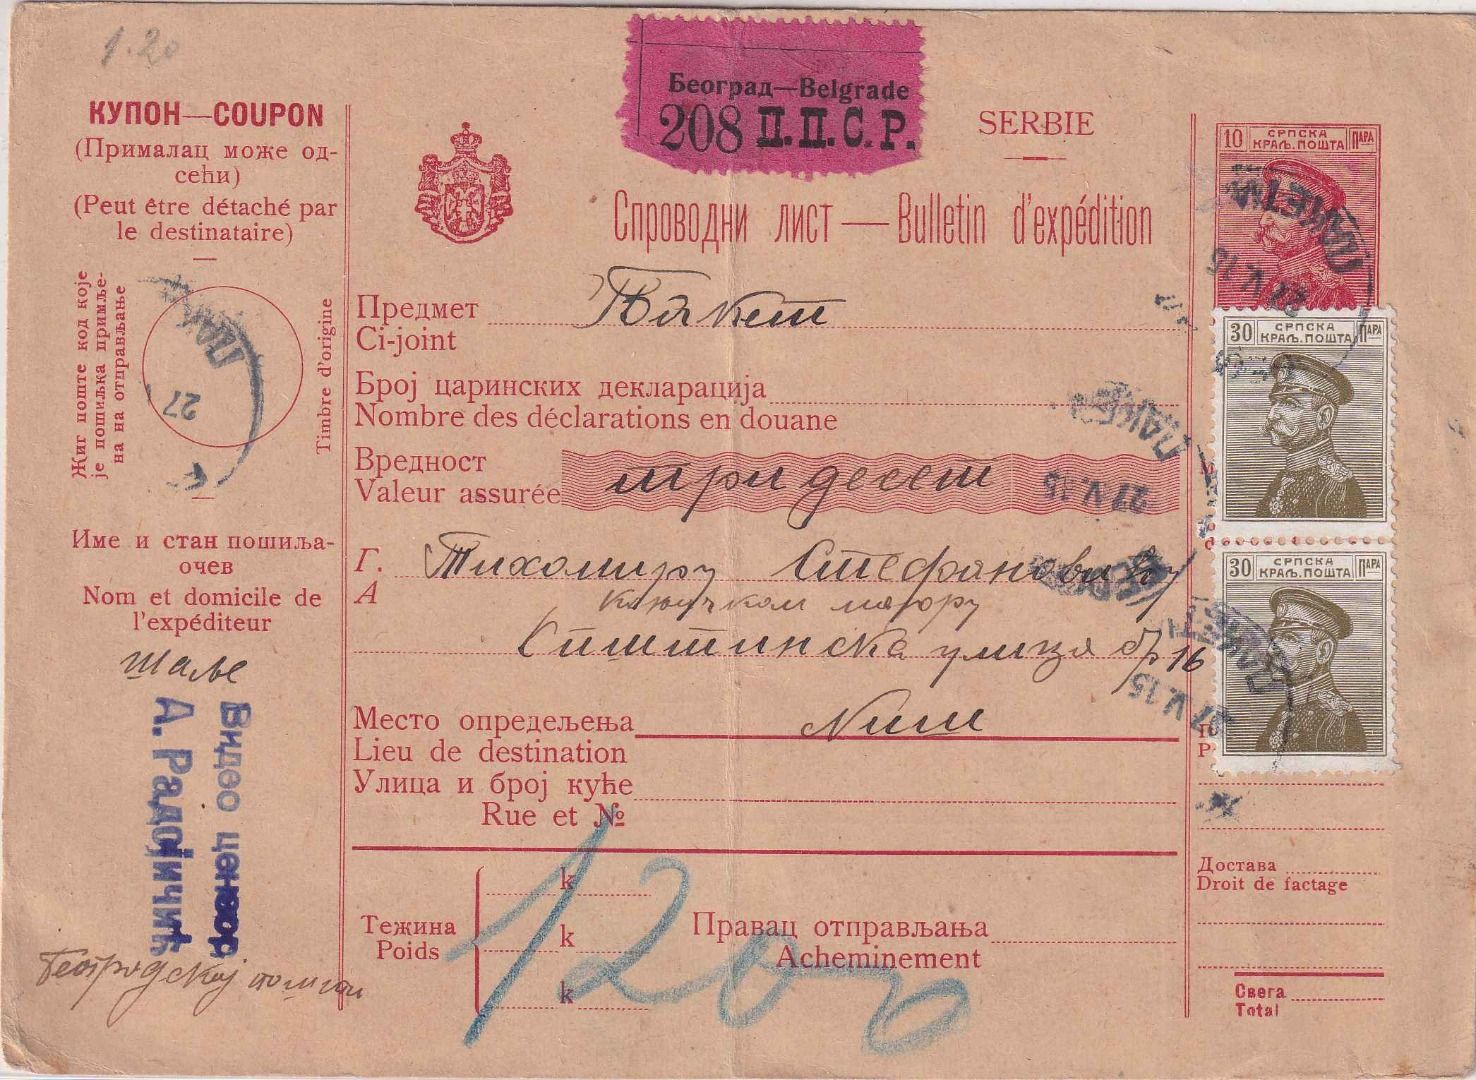 1.20
Београд—Belgrade
208 П.П.С.Р.
КУПОН—COUPON
(Прималац може од-
сећи)
(Peut être détaché par
le destinataire)
Жиг поште код које
је пошиљка примље-
на на отправљање
Timbre d'origine
ПАКЕ
27
Име и стан пошиља-
очев
Nom et domicile de
l'expéditeur
шаље
Видео цензор
А. Радојичић
SERBIE
Спроводни лист — Bulletin d'expédition
Предмет Пакет
Ci-joint
Број царинских декларација
Nombre des déclarations en douane
Вредност тридесет
Valeur assurée
Г. Тихомиру Стефановићу
A
мајору
улица бр 16
Место опредељења Ниш
Lieu de destination
Улица и број куће
Rue et №
Тежина
Poids
k
k
k
1200
Правац отправљања
Acheminement
10 СРПСКА ПАРА
КРАЉ. ПОШТА
ПАКЕТА
27 V. 15
30 СРПСКА ПАРА
КРАЉ. ПОШТА
ПАКЕТ
27 V. 15
30 СРПСКА ПАРА
КРАЉ. ПОШТА
ПАКЕТ
27 V. 15
Достава
Droit de factage
Свега
Total